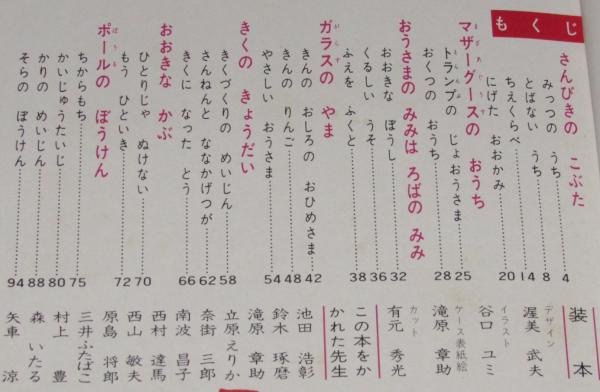 もくじ
さんびきの こぶた
みっつの うち……4
とばない うち……8
ちえくらべ……14
にげた おおかみ……20
マザーグースの おうち
トランプの じょおうさま……25
おくつの おうち……28
おうさまの みみは ろばの みみ
おおきな ぼうし……32
くるしい うそ……36
ふえを ふくと……38
ガラスの やま
きんの おしろの おひめさま……42
きんの りんご……48
やさしい おうさま……54
きくの きょうだい
きくづくりの めいじん……58
さんねんと ななかげつが……62
きくに なった とう……66
おおきな かぶ
ひとりじゃ ぬけない……70
もう ひといき……72
ポールの ぼうけん
ちからもち……75
かいじゅうたいじ……80
かりの めいじん……88
そらの ぼうけん……94
装本
デザイン
渥美 武夫
イラスト
谷口 ユミ
ケース表紙絵
滝原 章助
カット
有元 秀光
この本をか
かれた先生
池田 浩彰
鈴木 琢磨
滝原 章助
立原えりか
奈街 三郎
南波 昌子
西村 達馬
西山 敏夫
原島 将郎
三井ふたばこ
村上 豊
森 いたる
矢車 涼